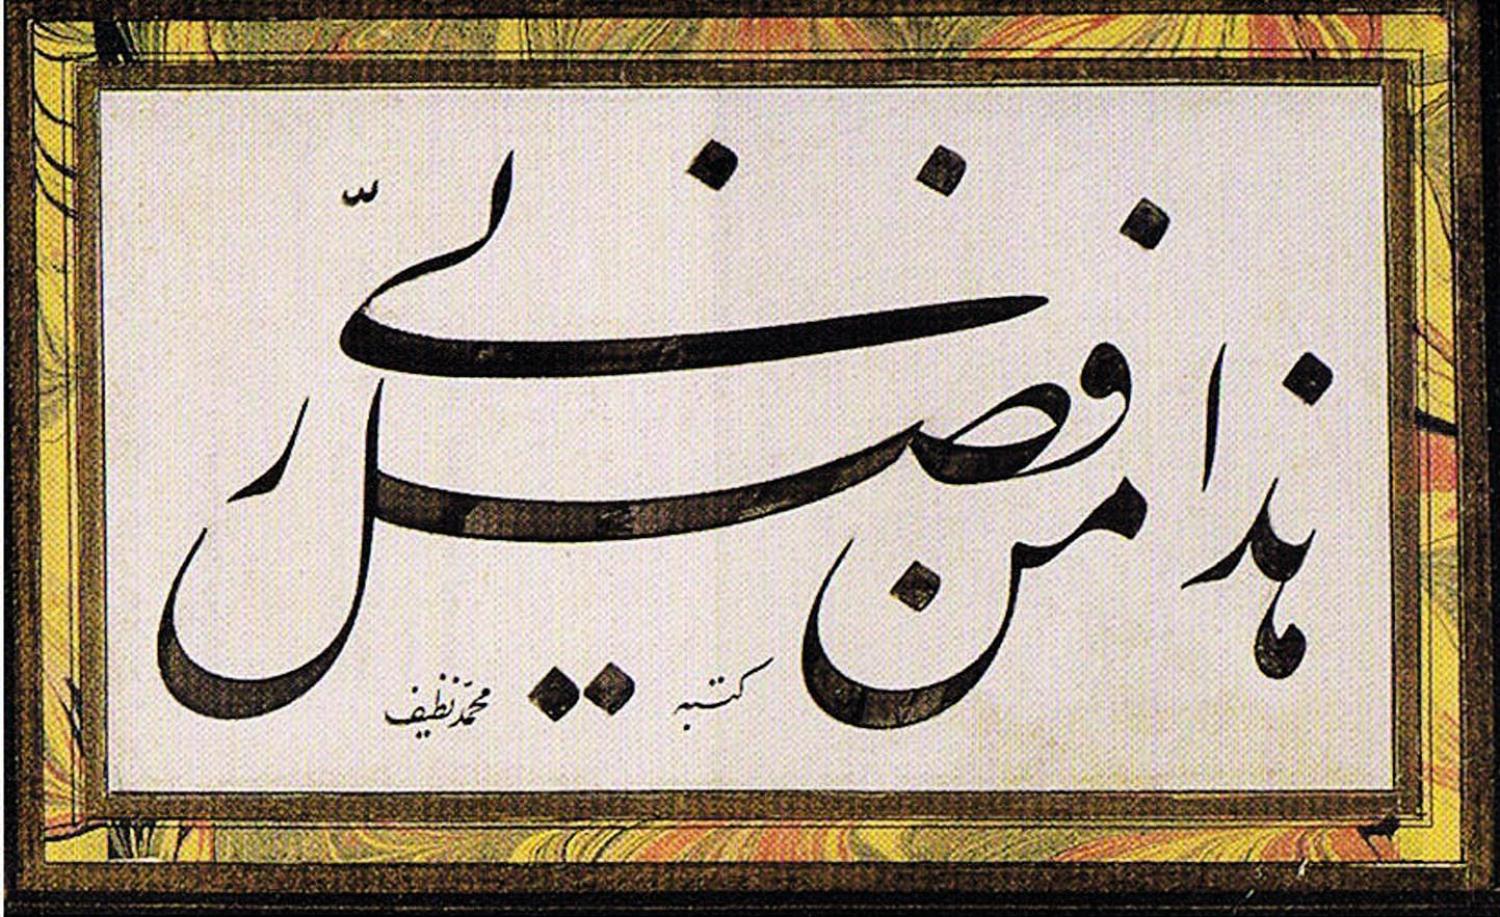 هذا من فضل ربّي
كتبه محمّد نظيف